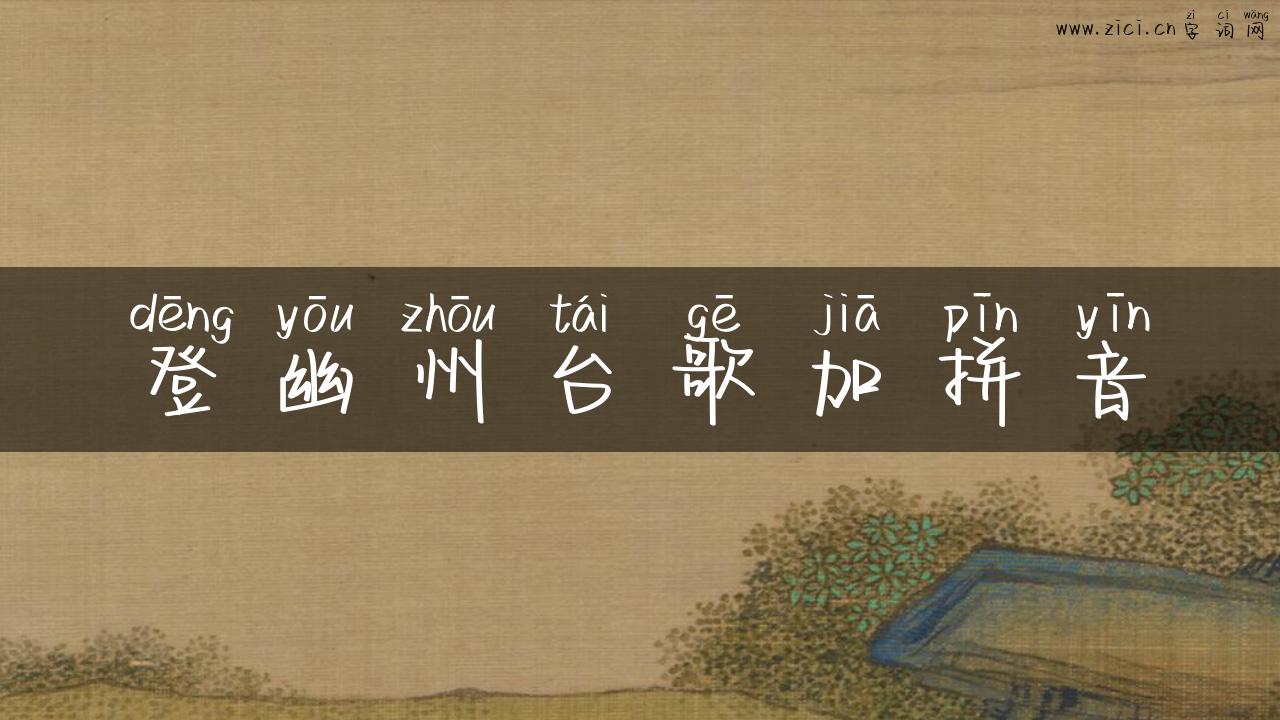 zì cí wǎng
www.zici.cn 字词网
dēng yōu zhōu tái gē jiā pīn yīn
登幽州台歌加拼音